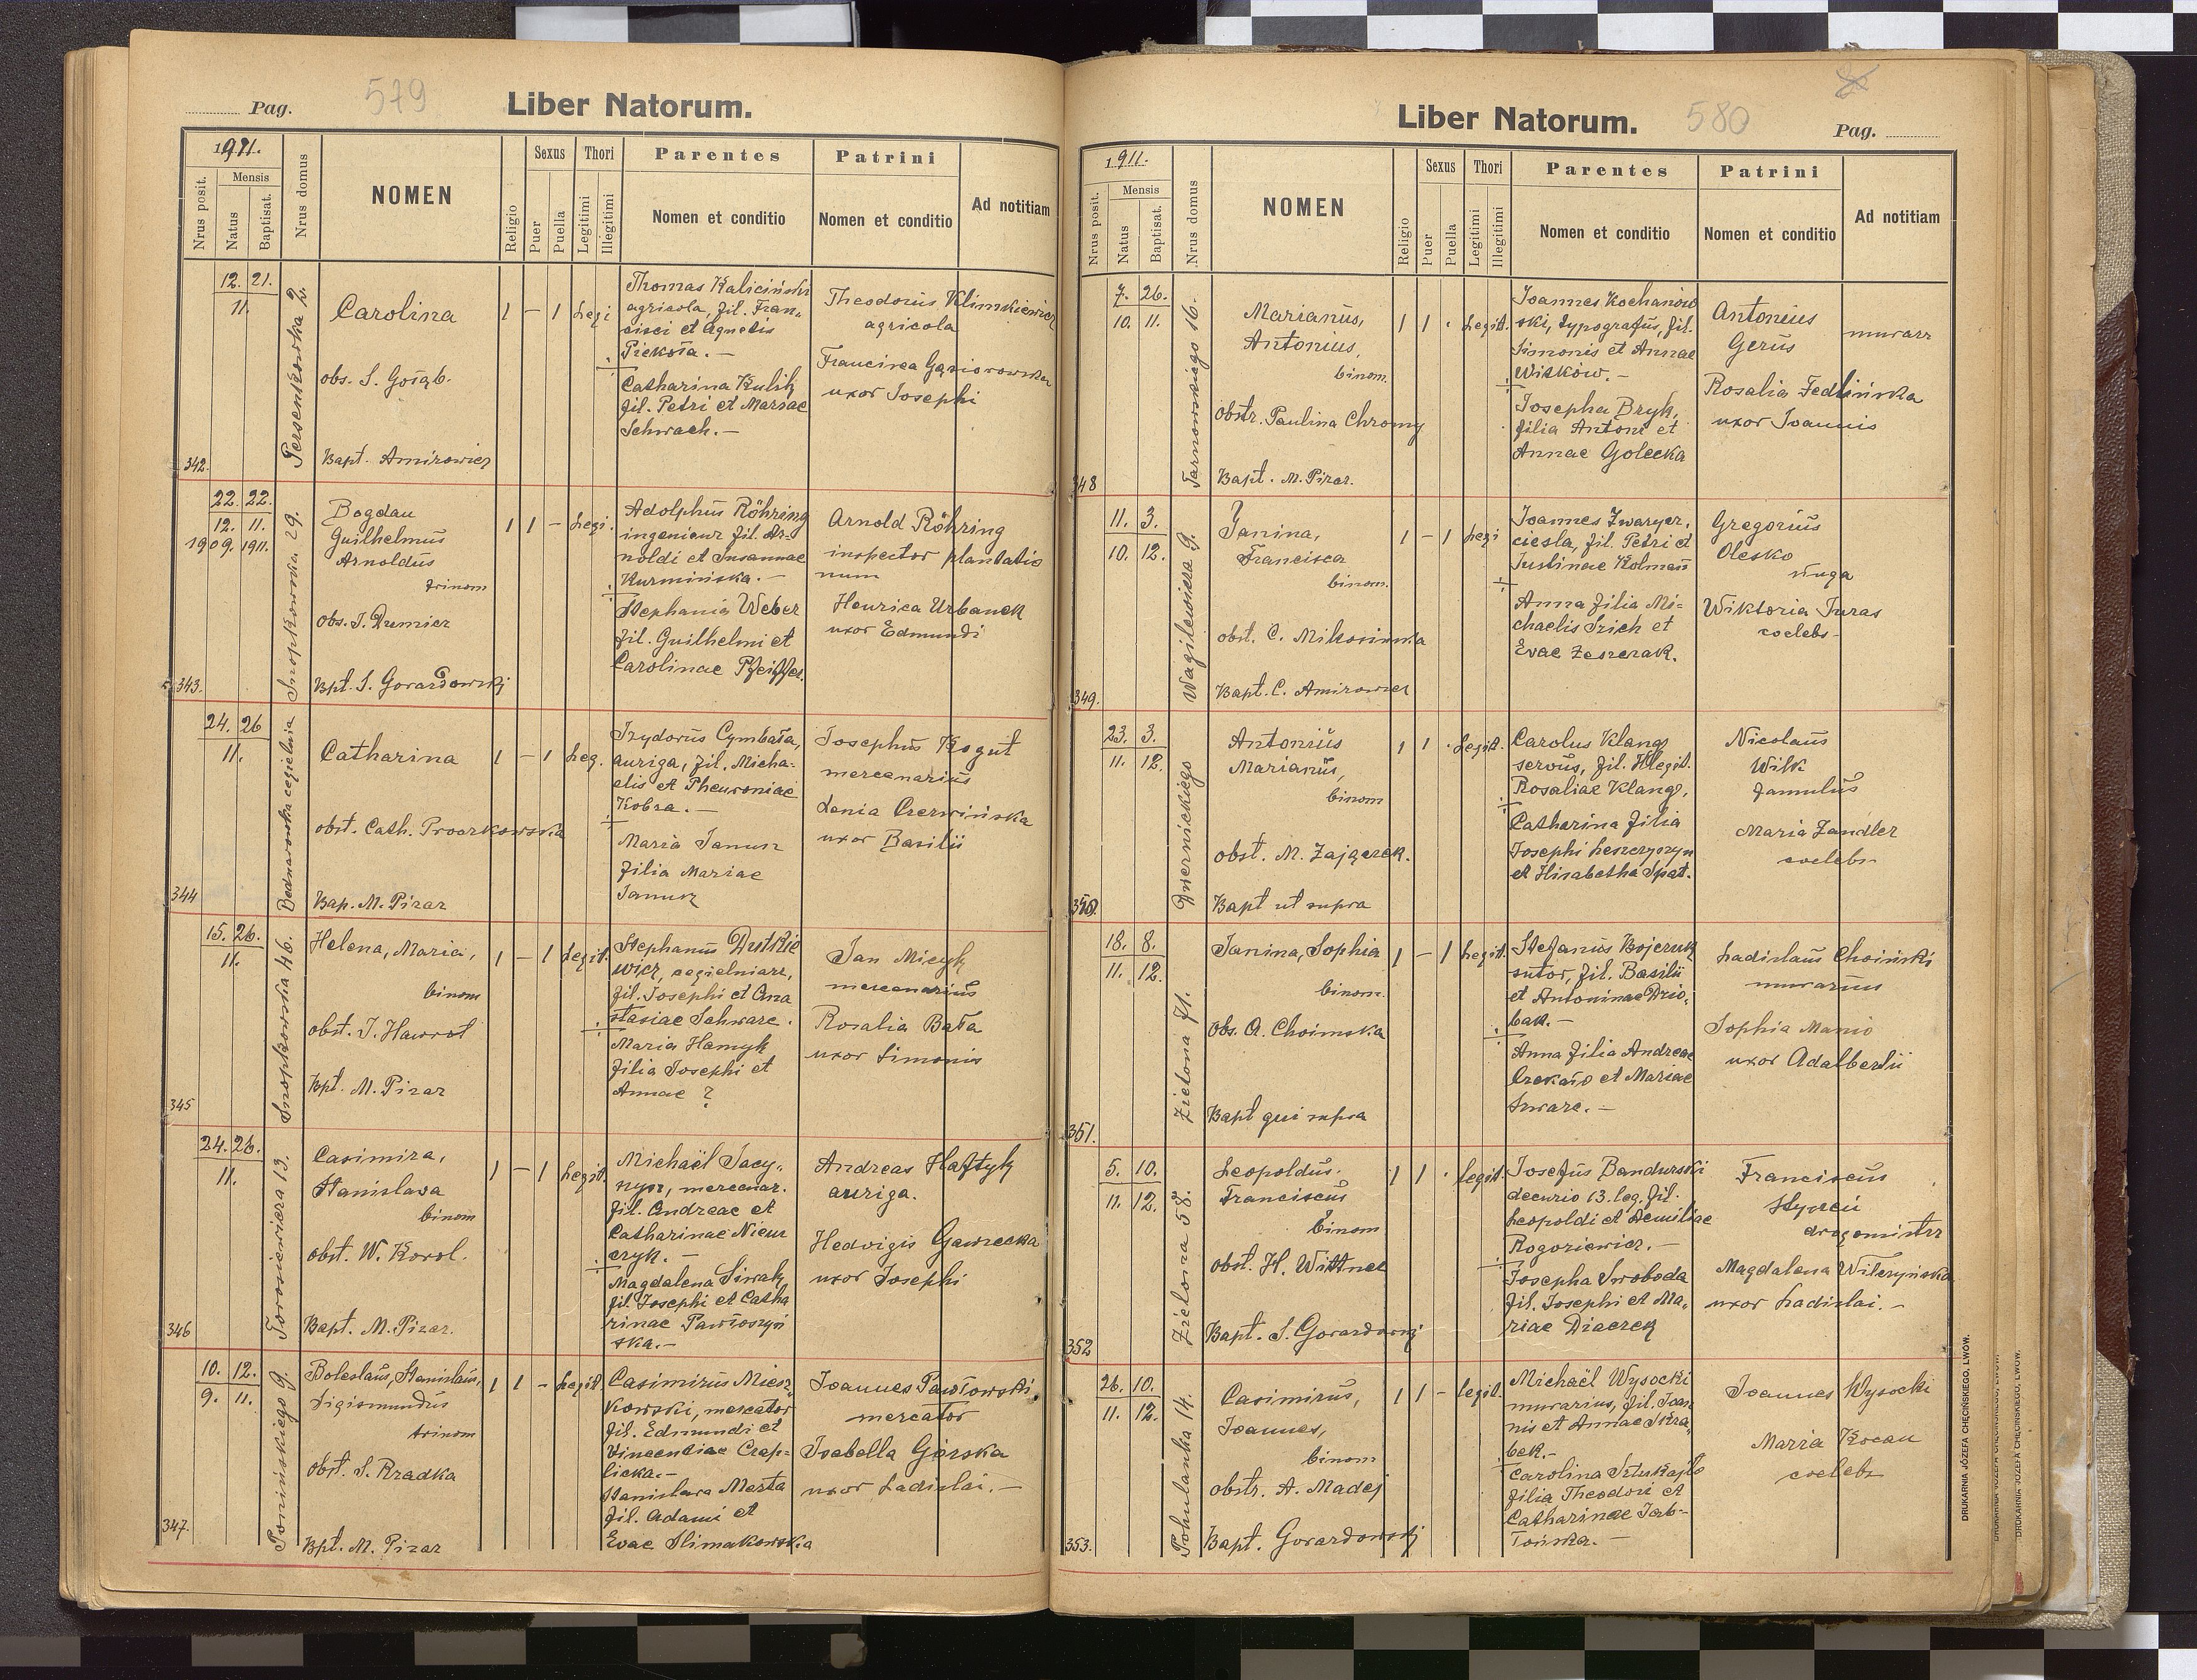 Pag.
579
Liber Natorum.
1911.
Nrus posit.
Mensis
Natus
Baptisat.
Nrus domus
NOMEN
Religio
Sexus
Puer
Puella
Thori
Legitimi
Illegitimi
Parentes
Nomen et conditio
Patrini
Nomen et conditio
Ad notitiam
342.
12. 21.
11.
Persenkowka 2.
Carolina
obs. S. Gołąb.
Bapt. Amirowicz
1 – 1 Legi
Thomas Kaliciński
agricola, fil. Fran„
cisci et Agnetis
Piekoła. –
Catharina Kulik
fil. Petri et Mariae
Schwach. –
Theodorus Klimkiewicz
agricola
Francisca Gąsiorowska
uxor Josephi
343.
22. 22.
12. 11.
1909. 1911.
Snopkowska 29.
Bogdan
Guilhelmus
Arnoldus
trinom
obs. J. Dremier
Bpt. S. Gorazdowski
1 1 – Legi.
Adolphus Röhring
ingenieur fil. Ar-
noldi et Susannae
Kurmińska. –
Stephania Weber
fil. Guilhelmi et
Carolinae Pfeiffer.
Arnold Röhring
inspector plantatio
num
Henrica Urbanek
uxor Edmundi
344
24. 26
11.
Bednarowska cegielnia
Catharina
obst. Cath. Proorkowska
Bap. M. Pizar
1 – 1 Leg.
Izydorus Cymbała,
auriga, fil. Micha-
elis et Pheuroniae
Kobra. –
Maria Janusz
filia Mariae
Janusz
Josephus Kogut
mercenarius
Xenia Czerwińska
uxor Basilii
345
15. 26.
11.
Snopkowska 46.
Helena, Maria,
binom
obst. J. Hawrot
Bpt. M. Pizar
1 – 1 Legit.
Stephanus Dutkie
wicz, cegielniarz,
fil. Josephi et Ana
stasiae Schwarc.
Maria Hamyk
filia Josephi et
Annae ?
Jan Micyk
mercenarius
Rosalia Bała
uxor Simonis
346
24. 26.
11.
Torosiewicza 13.
Casimira,
Stanislava
binom
obst. W. Korol.
Bapt. M. Pizar.
1 – 1 Legit.
Michaël Jacy„
nycz, mercenar.
fil. Andreae et
Catharinae Niem
czyk. –
Magdalena Siwak
fil. Josephi et Catha
rinae Pawłoszyń
ska. –
Andreas Haftyk
auriga.
Hedvigis Gawrecka
uxor Josephi
347.
10. 12.
9. 11.
Ponińskiego 9.
Boleslaus, Stanislaus,
Sigismundus
trinom
obst. S. Rradka
Bpt. M. Pizar
1 1 – Legit
Casimirus Miesz„
kowski, mercator
fil. Edmundi et
Vincentiae Czap-
licka. –
Stanislava Marta
fil. Adami et
Evae Slimakowska
Joannes Pawłowski,
mercator
Isabella Górska
uxor Ladislai. –
Liber Natorum.
580
Pag.
1911.
Nrus posit.
Mensis
Natus
Baptisat.
Nrus domus
NOMEN
Religio
Sexus
Puer
Puella
Thori
Legitimi
Illegitimi
Parentes
Nomen et conditio
Patrini
Nomen et conditio
Ad notitiam
348
7. 26.
10. 11.
Tarnowskiego 16.
Marianus,
Antonius,
binom.
obstr. Paulina Chromy
Bapt. M. Pizar.
1 1 . Legit.
Joannes Kochanow
ski, typografus, fil.
Simonis et Annae
Witków. –
Josepha Bryk,
filia Antoni et
Annae Golecka
Antonius
Gerus
murarz
Rosalia Fedlińska
uxor Joannis
349.
11. 3.
10. 12.
Wagilewicza 9.
Janina,
Francisca
binom.
obst. C. Mikosinska
Bapt. C. Amirowicz
1 – 1 Legi
Joannes Zwarycz,
ciesla, fil. Petri et
Justinae Kolman
Anna filia Mi-
chaelis Srich et
Evae Zeszczak.
Gregorius
Olesko
sługa
Wiktoria Juras
coelebs –
350.
23. 3.
11. 12.
Dwernickiego
Antonius
Marianus,
binom
obst. M. Zajączek.
Bapt ut supra
1 1 . Legit.
Carolus Klang
servus, fil. Illegit.
Rosaliae Klang,
Catharina filia
Josephi Leszczyszyn
et Elisabetha Spat.
Nicolaus
Wilk
famulus
Maria Zandler
coelebs
351.
18. 8.
11. 12.
Zielona 71.
Janina, Sophia
binom.
Obs. A. Choimska
Bapt qui supra
1 – 1 Legit.
Stefanus Bojczuk
sutor, fil. Basilii
et Antoninae Dzio„
bak. –
Anna filia Andreae
Czekało et Mariae
Szwarc. –
Ladislaus Choiński
murarius
Sophia Manio
uxor Adalberti
352
5. 10.
11. 12.
Zielona 58.
Leopoldus.
Franciscus
binom
obst. H. Wittnel
Bapt. S. Gorazdowski
1 1 . legit.
Josefus Bandurski
decurio 13. leg. fil.
Leopoldi et Aemiliae
Rogoziewicz. –
Josepha Swoboda
fil. Josephi et Ma„
riae Diaczek
Franciscus
Styrcu
drogomistrz
Magdalena Wilczyńska
uxor Ladislai. –
353.
26. 10.
11. 12.
Pohulanka 14.
Casimirus,
Joannes,
binom
obstr. A. Madej
Bapt. Gorazdowski
1 1 – legit.
Michaël Wysocki
murarius, fil. Joan
nis et Annae Skra„
bek. –
Carolina Sztukajło
filia Theodori et
Catharinae Jab-
łońska. –
Joannes Wysocki
Maria Kocan
coelebs
DRUKARNIA JÓZEFA CHĘCIŃSKIEGO, LWÓW.
DRUKARNIA JÓZEFA CHĘCIŃSKIEGO, LWÓW.
DRUKARNIA JÓZEFA CHĘCIŃSKIEGO, LWÓW.